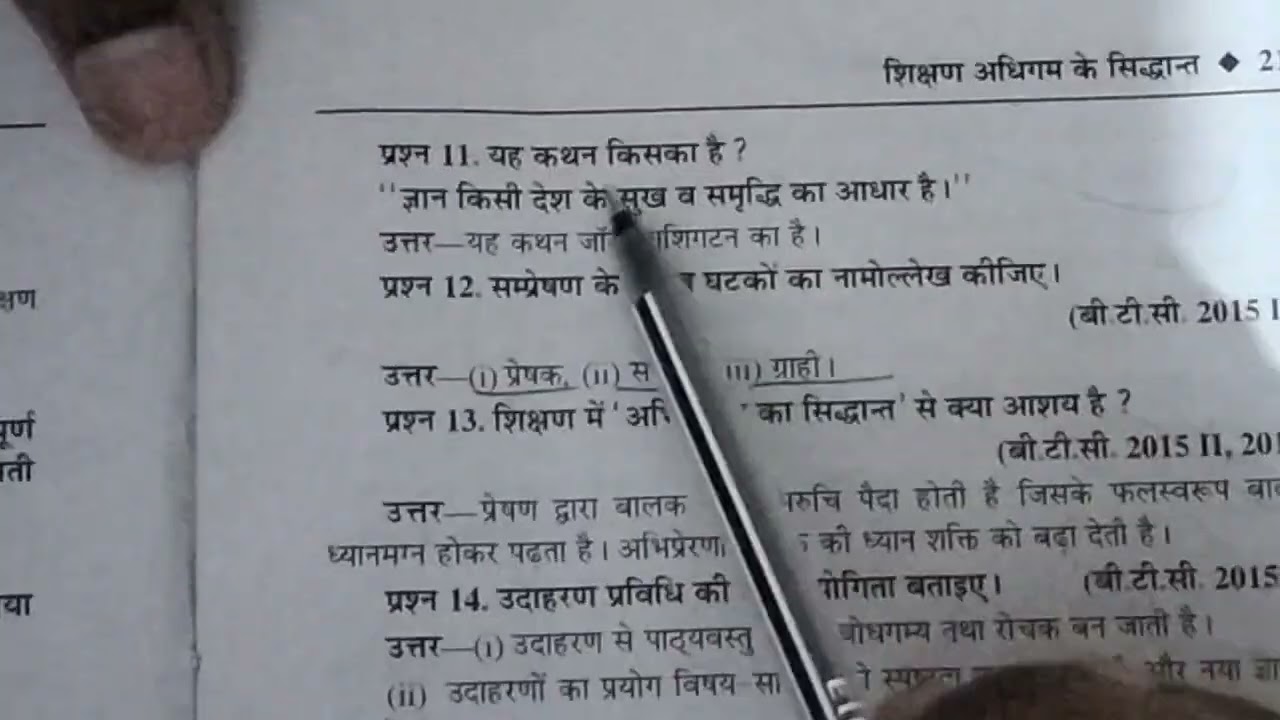 शिक्षण अधिगम के सिद्धान्त ◆
प्रश्न 11. यह कथन किसका है ?
"ज्ञान किसी देश के सुख व समृद्धि का आधार है।"
उत्तर—यह कथन का है।
प्रश्न 12. सम्प्रेषण के घटकों का नामोल्लेख कीजिए।
(बी.टी.सी. 2015
उत्तर—(i) प्रेषक, (ii) ग्राही।
प्रश्न 13. शिक्षण में का सिद्धान्त' से क्या आशय है ?
(बी.टी.सी. 2015 II,
उत्तर—प्रेषण द्वारा बालक पैदा होती है जिसके फलस्वरूप
ध्यानमग्न होकर पढ़ता है। की ध्यान शक्ति को बढ़ा देती है।
प्रश्न 14. उदाहरण प्रविधि की बताइए। (बी.टी.सी. 2015
उत्तर—(i) उदाहरण से पाठ्यवस्तु बोधगम्य तथा रोचक बन जाती है।
(ii) उदाहरणों का प्रयोग विषय और नया